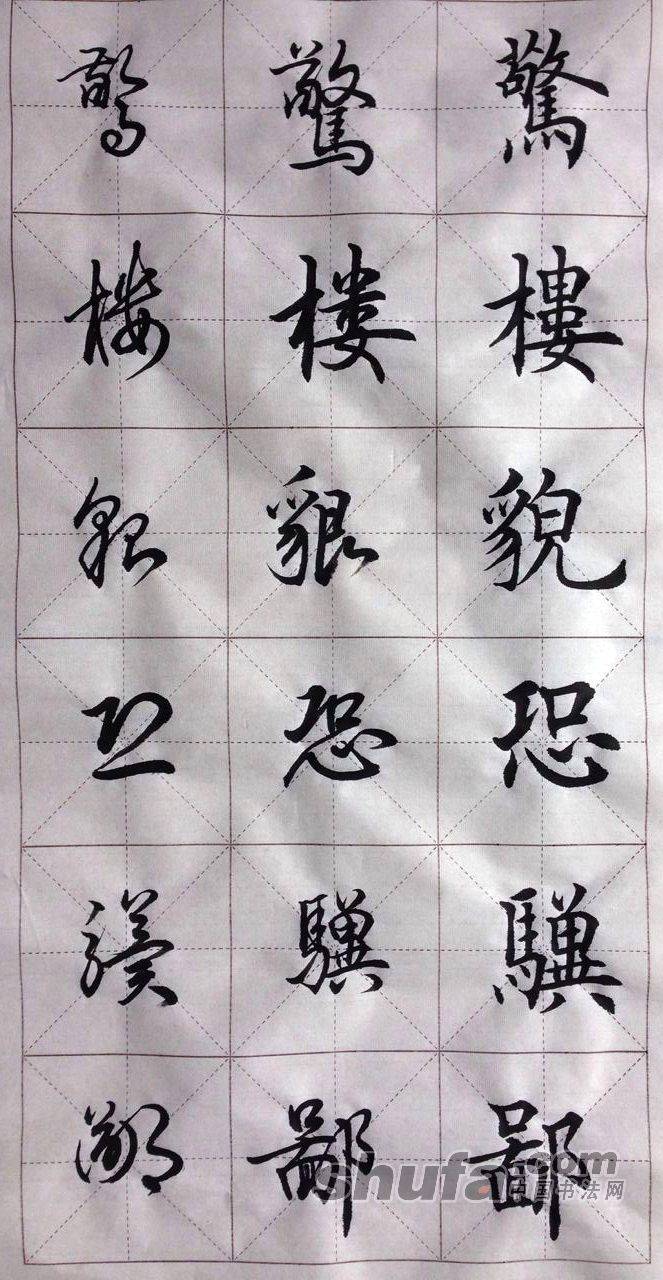 驚樓貌恐驥鄙
驚楼貌恐驥鄙
驚楼貌恐驥鄙
shufa.com
中国书法网